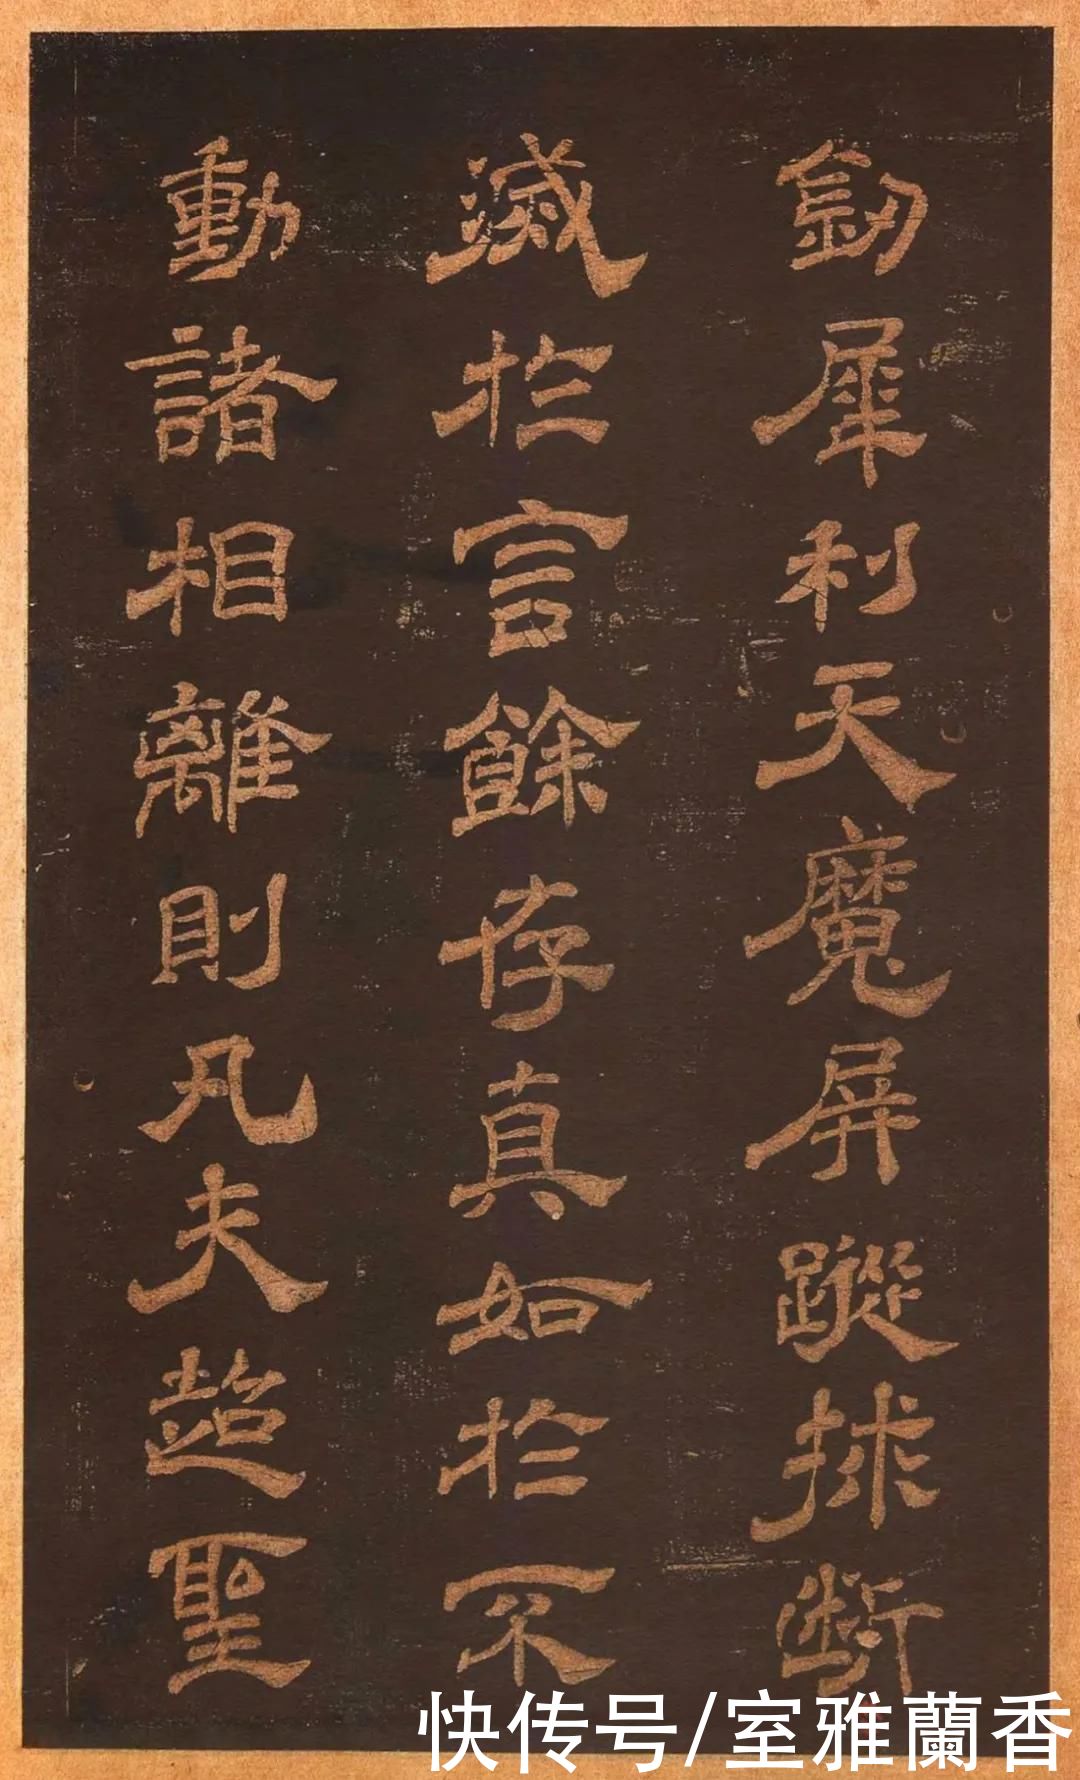 釼犀利天魔屏蹤捄斷
滅於言餘存真如於不
動諸相離則凡夫超聖
快传号/室雅蘭香